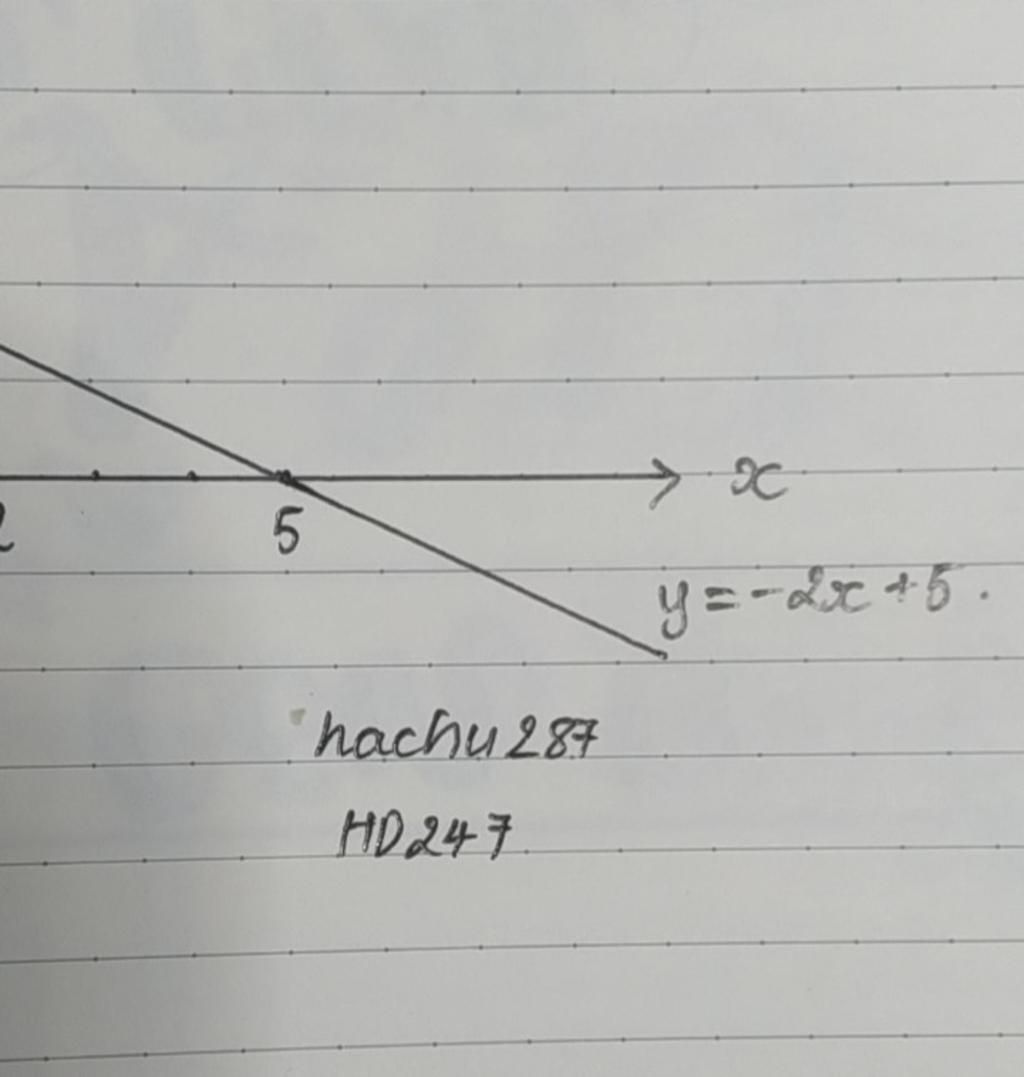 x
2 5
y = -2x + 5.
hachu287
HD247